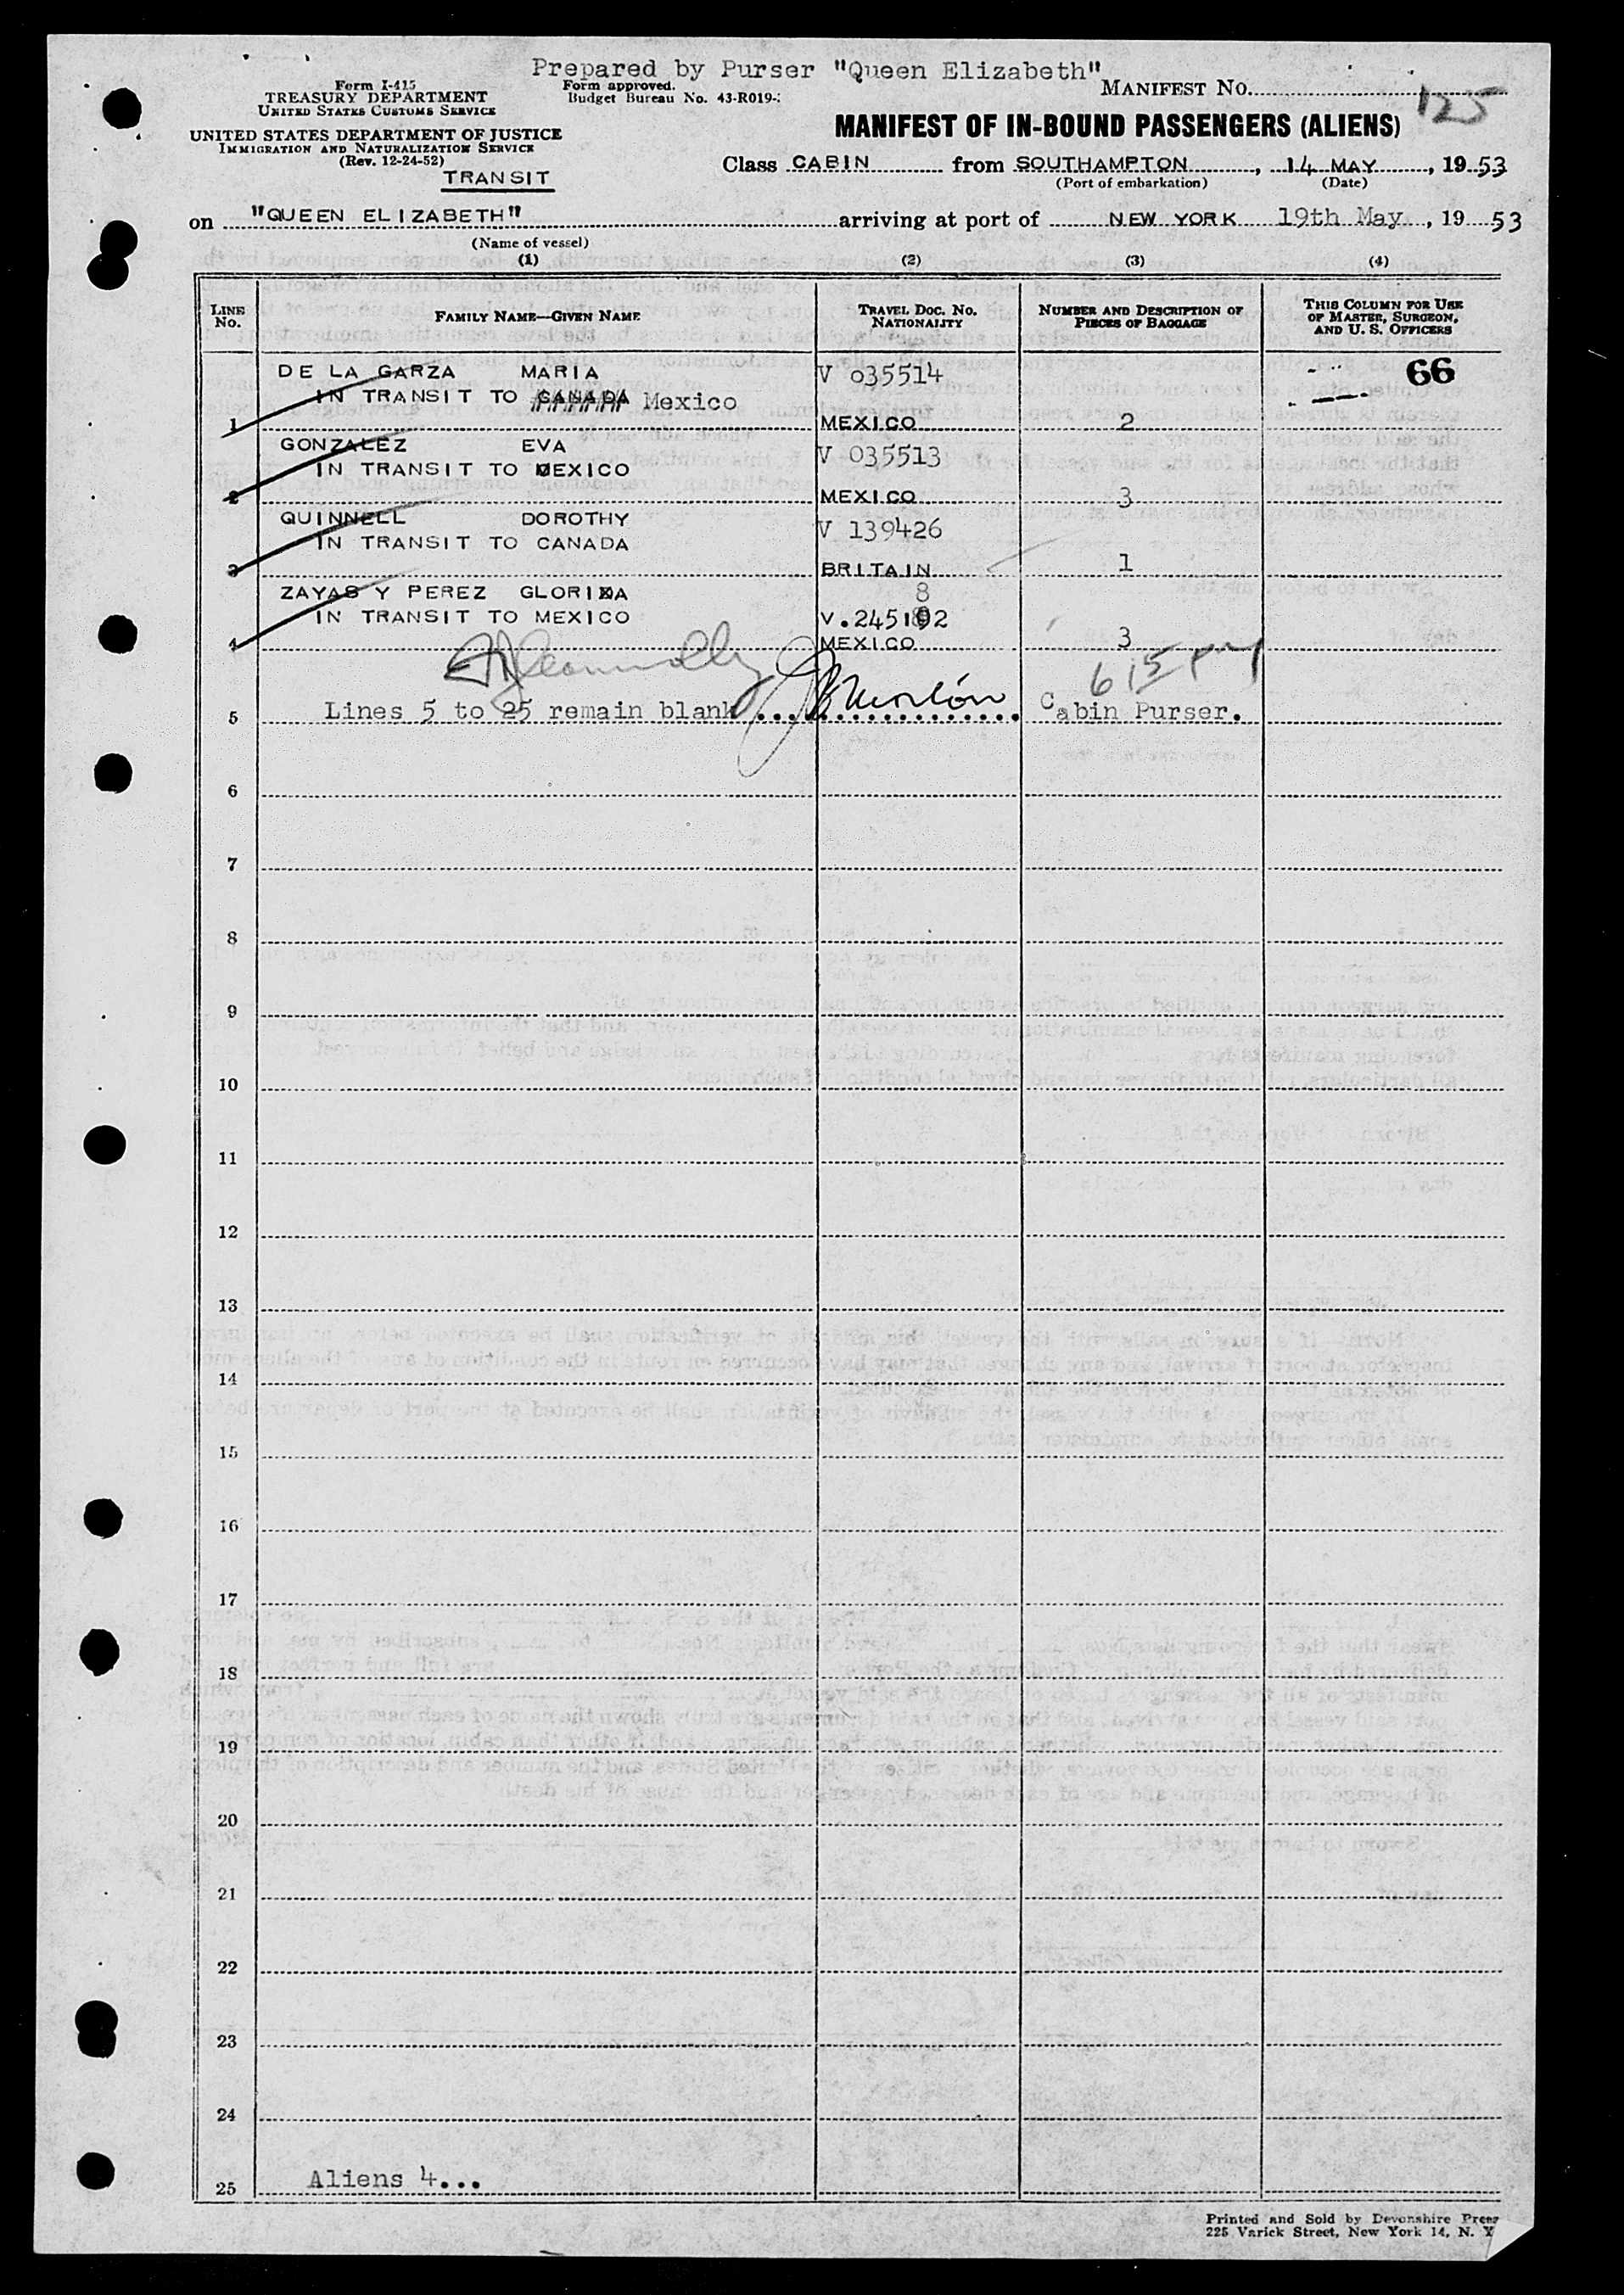 Prepared by Purser "Queen Elizabeth"
Form I-415
TREASURY DEPARTMENT
UNITED STATES CUSTOMS SERVICE
Form approved.
Budget Bureau No. 43-R019-
MANIFEST NO. 125
UNITED STATES DEPARTMENT OF JUSTICE
IMMIGRATION AND NATURALIZATION SERVICE
(Rev. 12-24-52)
TRANSIT
MANIFEST OF IN-BOUND PASSENGERS (ALIENS)
Class CABIN from SOUTHAMPTON, 14 MAY, 19 53
(Port of embarkation) (Date)
on "QUEEN ELIZABETH" arriving at port of NEW YORK 19th May, 19 53
(Name of vessel)
(1) (2) (3) (4)
LINE No. FAMILY NAME—GIVEN NAME TRAVEL DOC. NO. NATIONALITY NUMBER AND DESCRIPTION OF PIECES OF BAGGAGE THIS COLUMN FOR USE OF MASTER, SURGEON, AND U. S. OFFICERS
DE LA GARZA MARIA V 035514 66
IN TRANSIT TO CANADA Mexico
1 MEXICO 2
GONZALEZ EVA V 035513
IN TRANSIT TO MEXICO
2 MEXICO 3
QUINNELL DOROTHY V 139426
IN TRANSIT TO CANADA
3 BRITAIN 1
ZAYAS Y PEREZ GLORIA 8
IN TRANSIT TO MEXICO V.245192
4 MEXICO 3
6 15 pm
5 Lines 5 to 25 remain blank Cabin Purser.
6
7
8
9
10
11
12
13
14
15
16
17
18
19
20
21
22
23
24
25 Aliens 4...
Printed and Sold by Devonshire Press
225 Varick Street, New York 14, N. Y